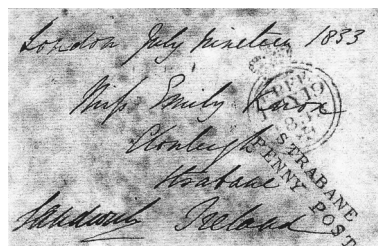 London July nineteen 1833
Miss Emily Knox
Clonleigh
Strabane
Ireland
FREE
19
STRABANE
PENNY POST